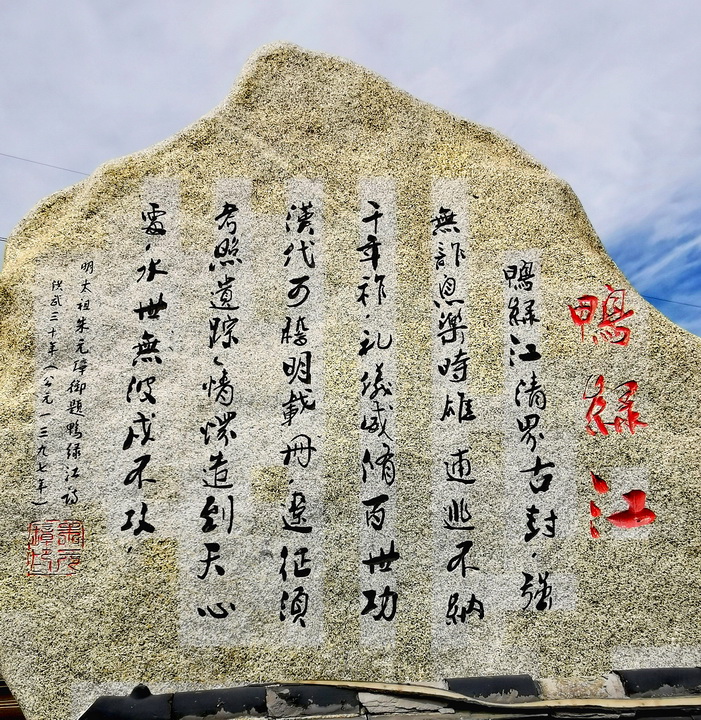 鴨緑江
鴨緑江清界古封，强
無詐息樂時雄逋逃不納
千年祚，礼儀咸脩百世功
漢代可稽明載册，遼征須
考照遺踪，情懷造到天心
處，水世無波戍不攻，
明太祖朱元璋御題鴨绿江詩
洪武三十年（公元一三九七年）